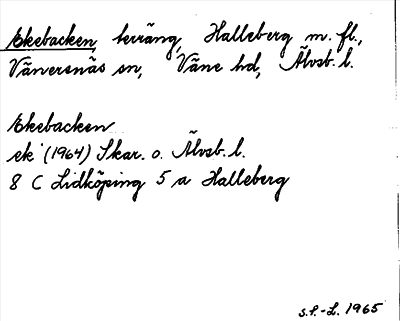 Ekebacken, terräng, Halleberg m. fl.,
Vänersnäs sn, Väne hd, Älvsb. l.
Ekebacken
ek (1964) Skar. o. Älvsb. l.
8 C Lidköping 5 a Halleberg
S.F.-L. 1965